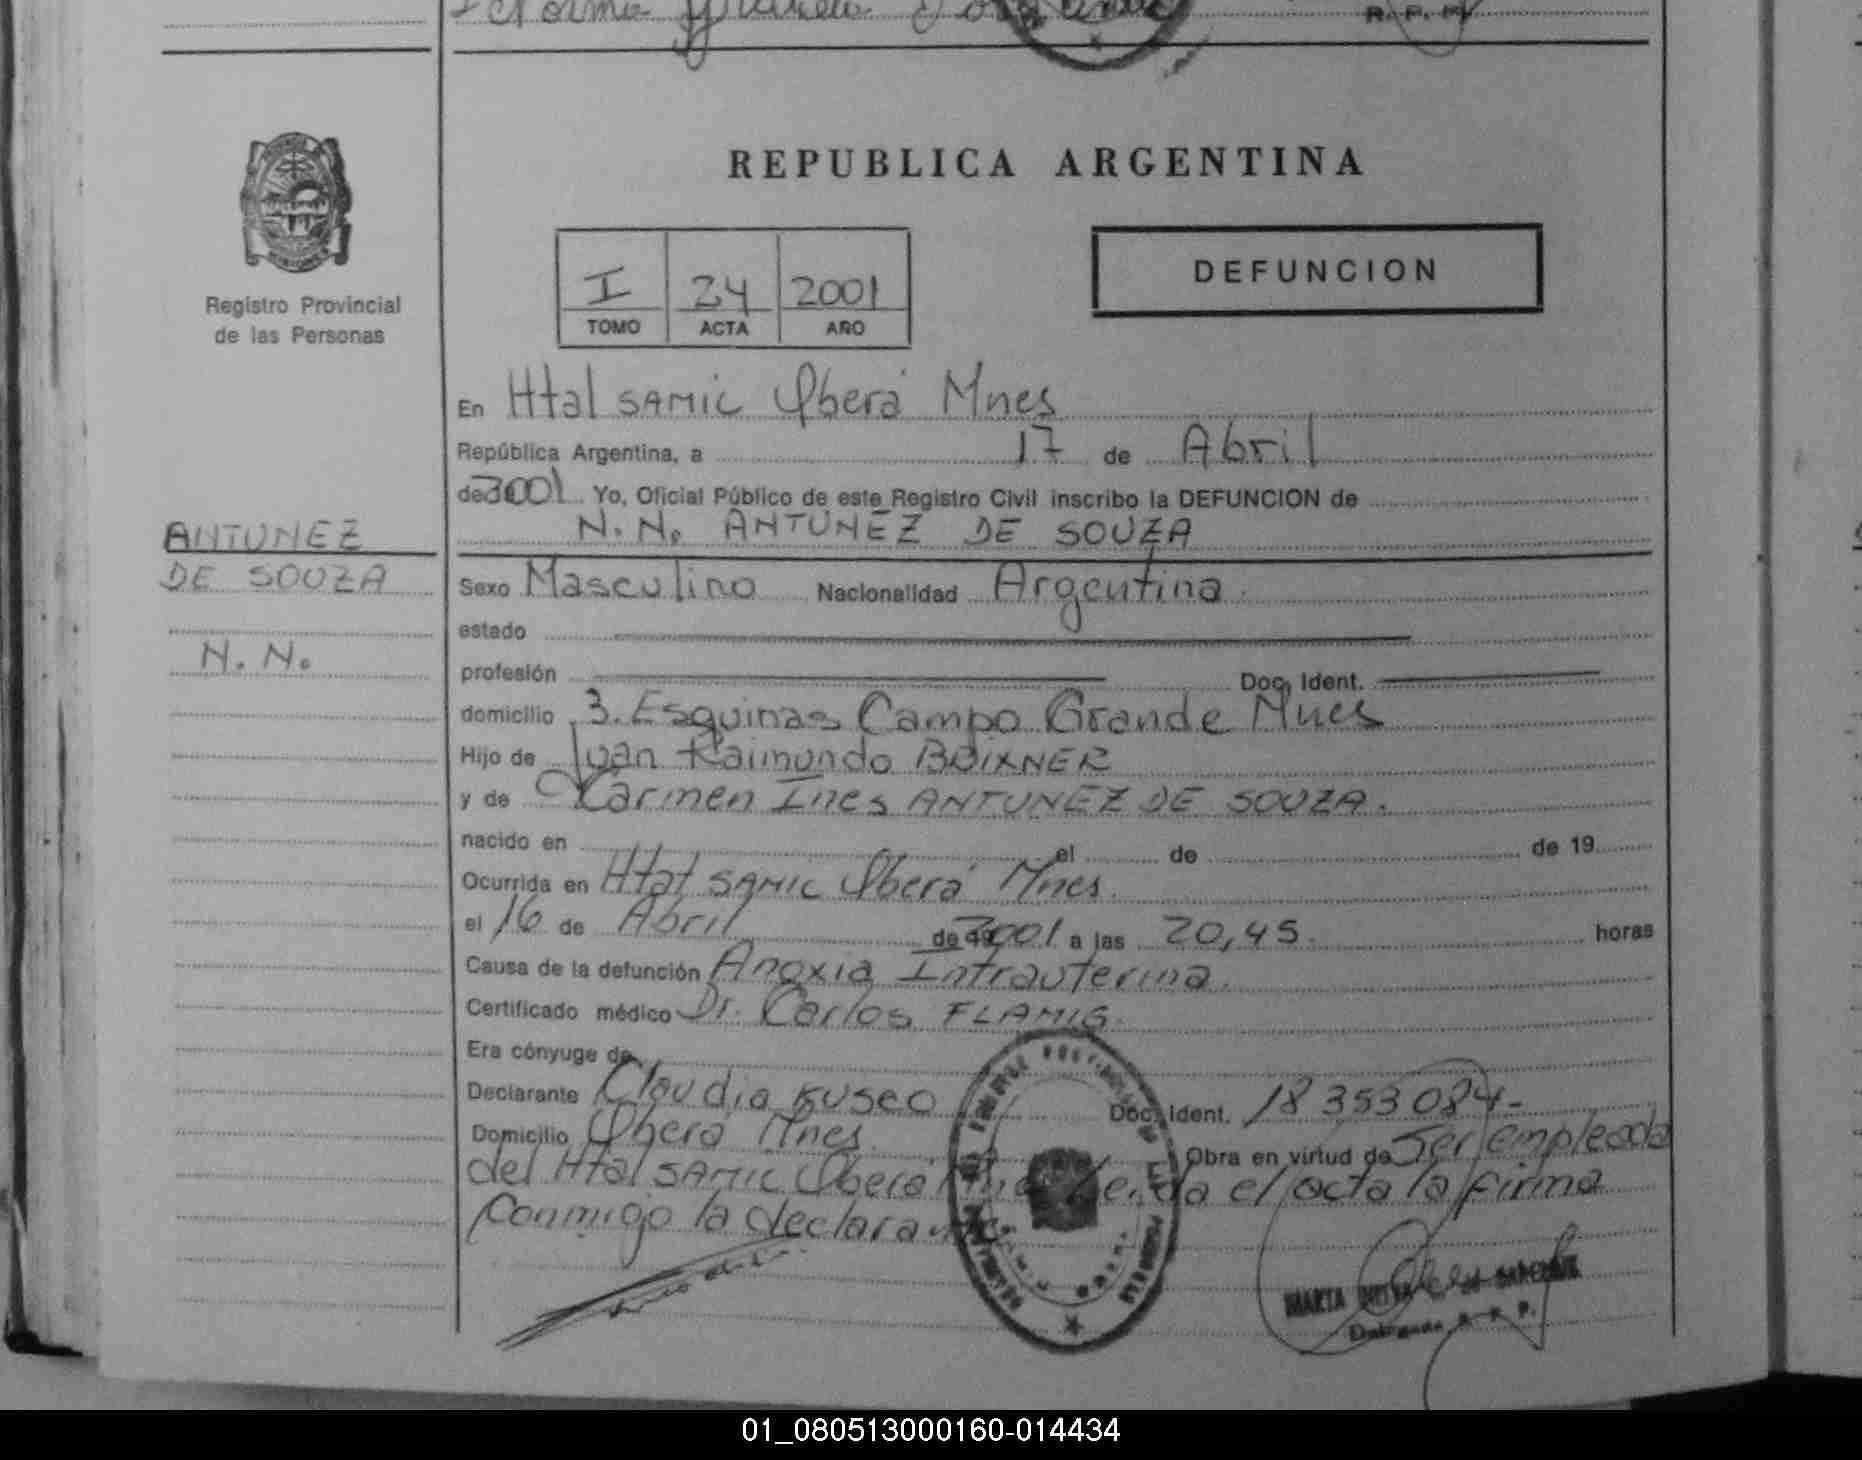 R. P. P.
REPUBLICA ARGENTINA
DEFUNCION
I 24 2001
TOMO ACTA AÑO
Registro Provincial
de las Personas
En Htal SAMIC Oberá Mnes
República Argentina, a 17 de Abril
de 2001 Yo, Oficial Público de este Registro Civil inscribo la DEFUNCION de
N. N. ANTUNEZ DE SOUZA
ANTUNEZ
DE SOUZA
N. N.
Sexo Masculino Nacionalidad Argentina.
estado
profesión Doc. Ident.
domicilio 3. Esquinas Campo Grande Mnes
Hijo de Juan Raimundo BRIXNER
y de Carmen Ines ANTUNEZ DE SOUZA.
nacido en el de de 19
Ocurrida en Htal SAMIC Oberá Mnes.
el 16 de Abril de 19 2001 a las 20,45. horas
Causa de la defunción Anoxia Intrauterina.
Certificado médico Dr. Carlos FLAMIG.
Era cónyuge de
Declarante Claudia KUSCO Doc. Ident. 18 353 084-
Domicilio Oberá Mnes. Obra en virtud de Ser empleada
del Htal SAMIC Oberá el acta la firma
Conmigo la declarante
MARTA
01_080513000160-014434